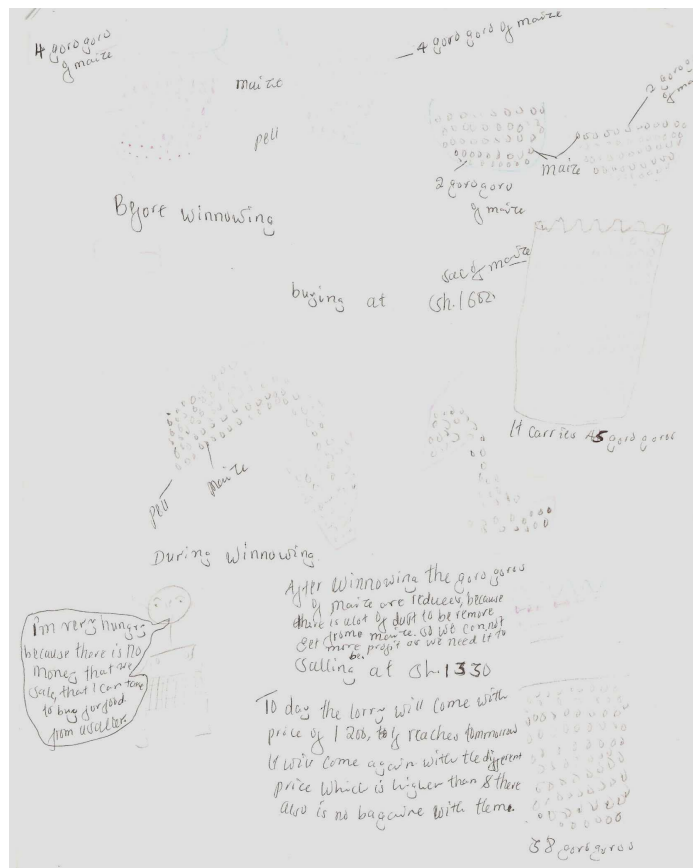 4 gorogoro
of maize
4 goro goro of maize
maize
pell
2 goro
of ma
maize
2 gorogoro
of maize
Before winnowing
sac of maize
buying at sh.1600
It Carries 45 gorogoros
pell
maize
During winnowing.
After winnowing the gorogoros
of maize are reduces, because
there is alot of dust to be remove
from maize. so we connot
get more profit as we need it to
be.
Salling at sh.1330
I'm very hungry
because there is no
money that we
sale, that I can take
to buy
from
To day the lorry will come with
price of 1200, reaches tommorrow
It will come again with the different
price which is higher than & there
also is no bagaine with them.
38 gorogoros